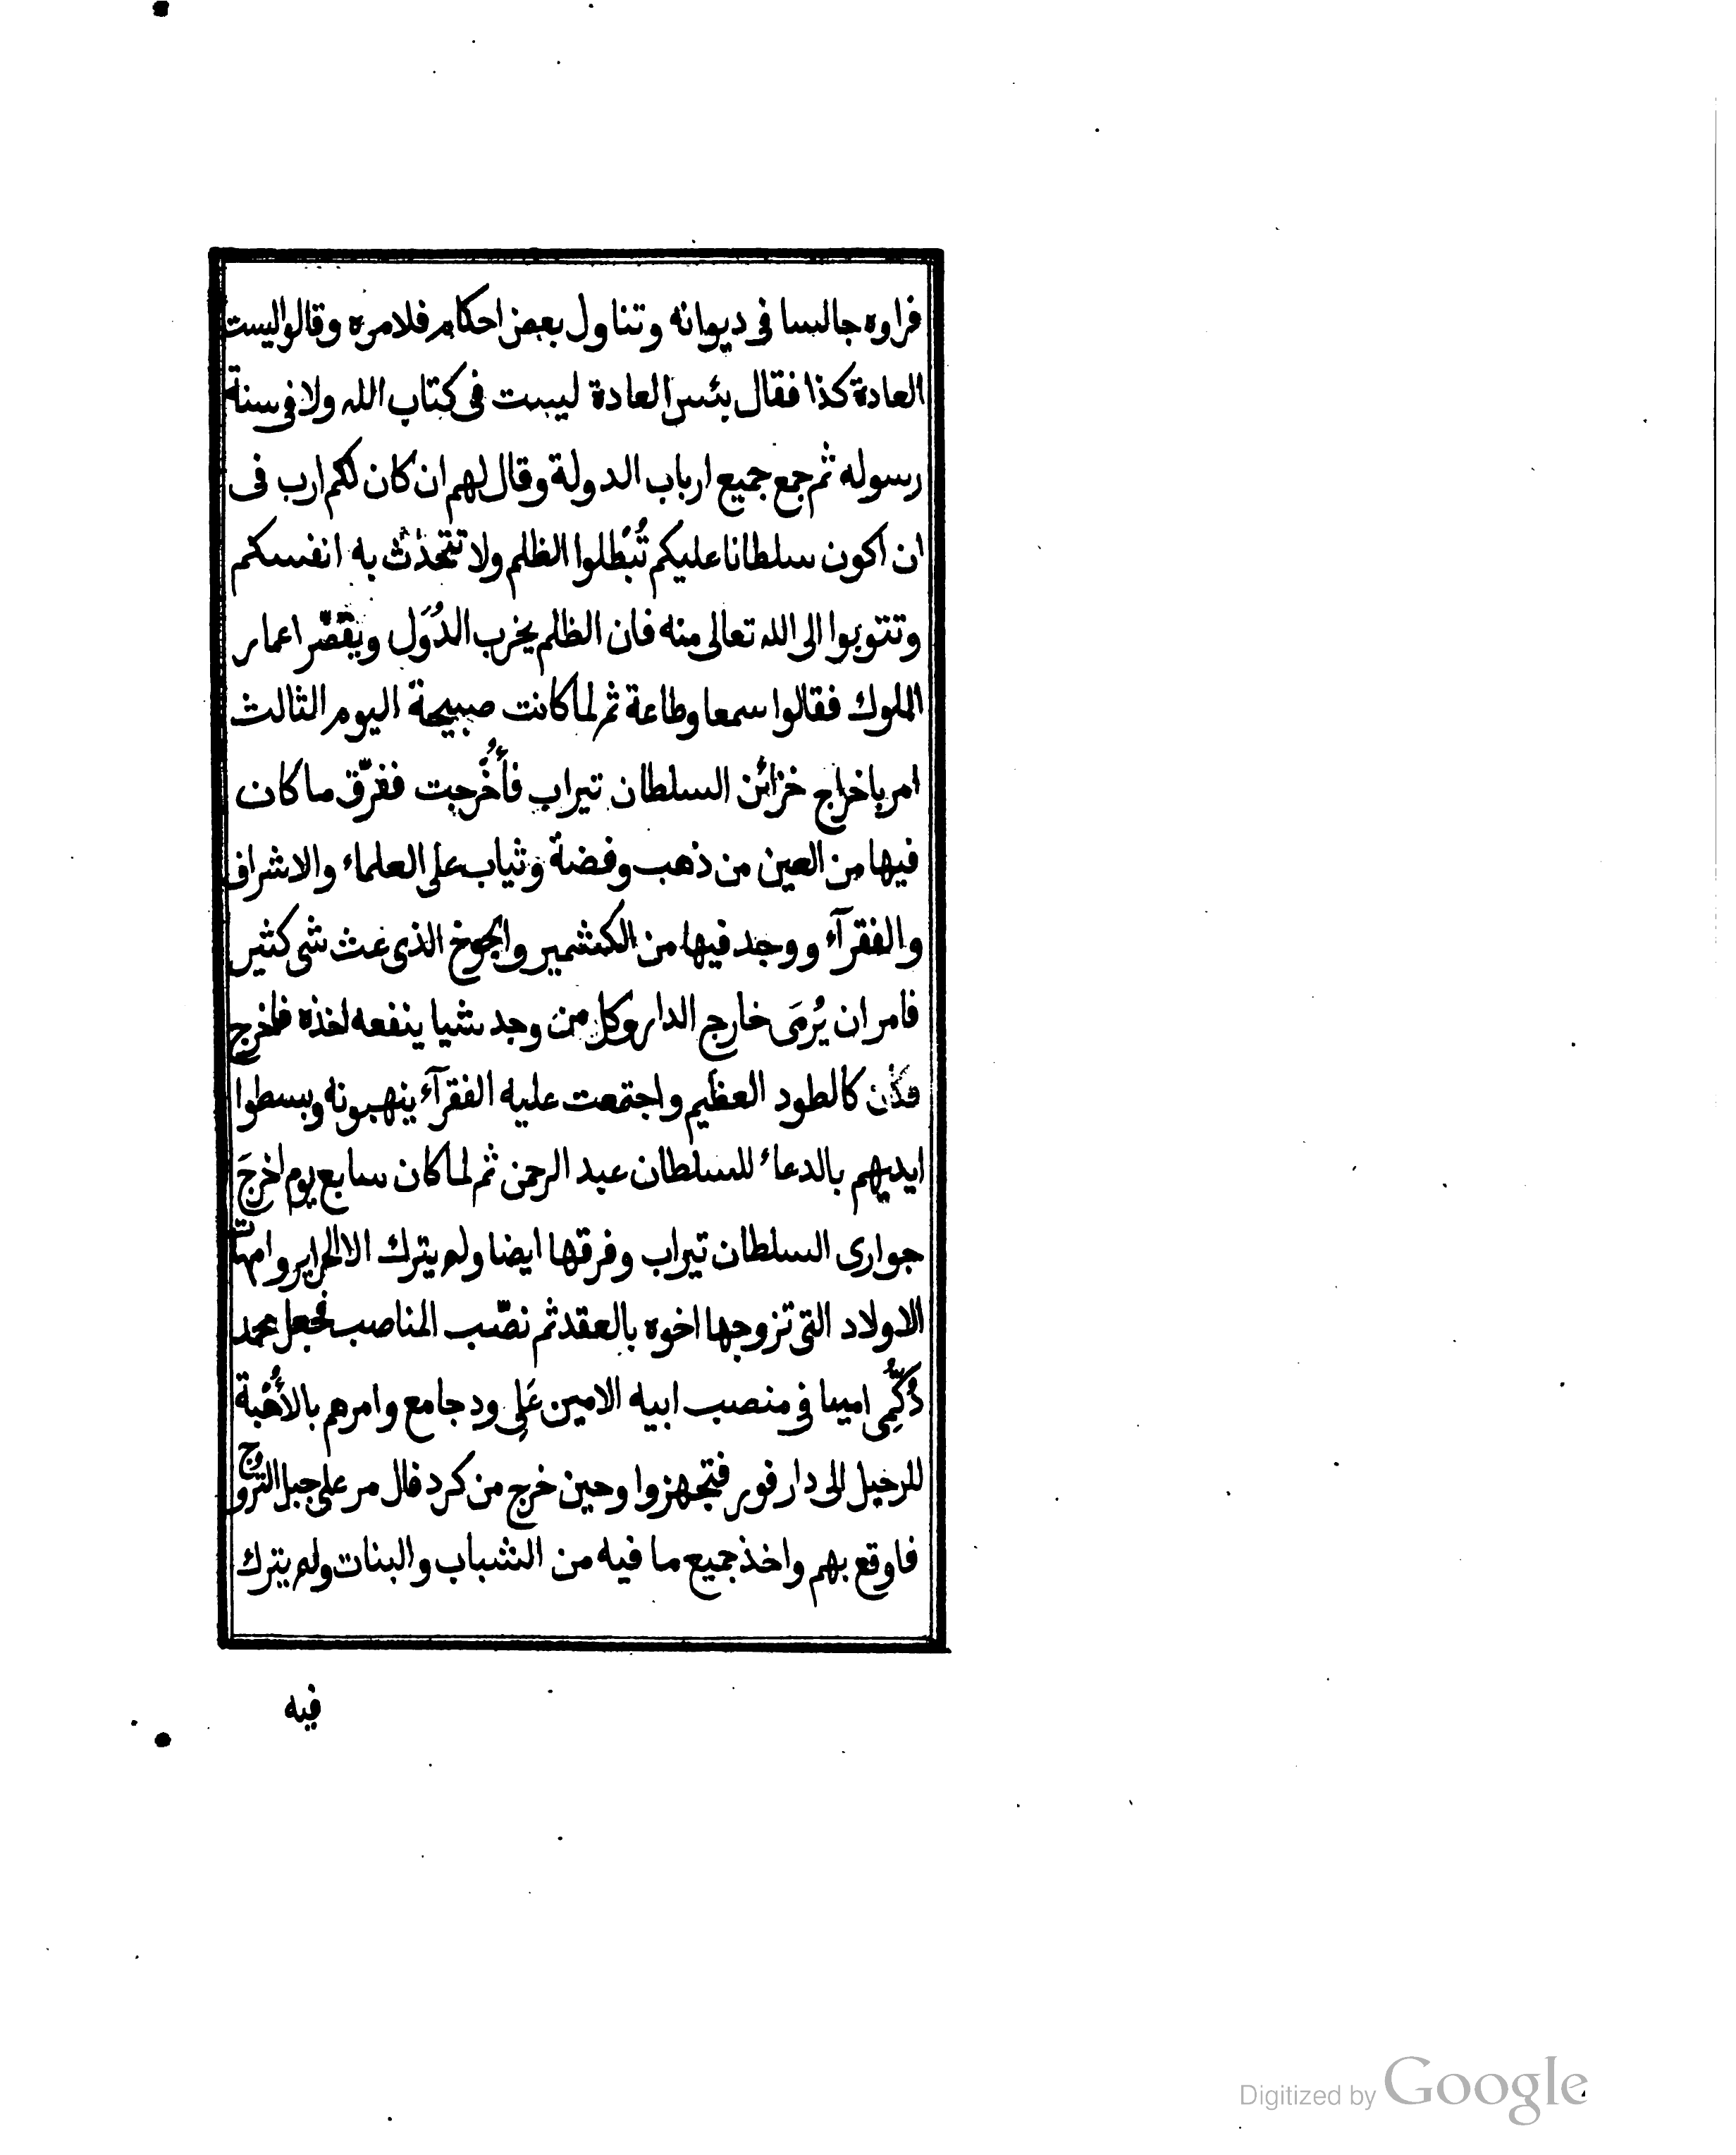 فراوه جالسا فى ديوانه وتناول بعض احكام فلامره وقالوا ليست
العادة كذا فقال بئس العادة ليست فى كتاب الله ولا فى سنة
رسوله ثم جمع جميع ارباب الدولة وقال لهم ان كان لكم ارب فى
ان اكون سلطانا عليكم تُبْطلوا الظلم ولا تتحدث به انفسكم
وتتوبوا الى الله تعالى منه فان الظلم يخرب الدُوَل ويقصّر اعمار
الملوك فقالوا سمعا وطاعة ثم لما كانت صبيحة اليوم الثالث
امر باخراج خزائن السلطان تيراب فأُخْرجت ففرّق ما كان
فيها من العين من ذهب وفضة وثياب على العلماء والاشراف
والفقرآء ووجد فيها من الكشمير والجوخ الذى غث شى كثير
فامر ان يُرمَى خارج الدار وكل من وجد شيا ينفعه اخذه فاخرج
فكان كالطود العظيم واجتمعت عليه الفقرآء ينهبونه وبسطوا
ايديهم بالدعاء للسلطان عبد الرحمن ثم لما كان سابع يوم اخرجَ
جوارى السلطان تيراب وفرقها ايضا ولم يترك الا الحراير وامهات
الاولاد التى تزوجها اخوه بالعقد ثم نصّب المناصب فجعل محمد
دُكِّمِى امينا فى منصب ابيه الامين عَلِى ود جامع وامرهم بالأُهْبة
للرحيل الى دار فور فتجهزوا وحين خرج من كرد فال مر على جبل التروج
فاوقع بهم واخذ جميع ما فيه من الشباب والبنات ولم يترك
فيه
Digitized by Google